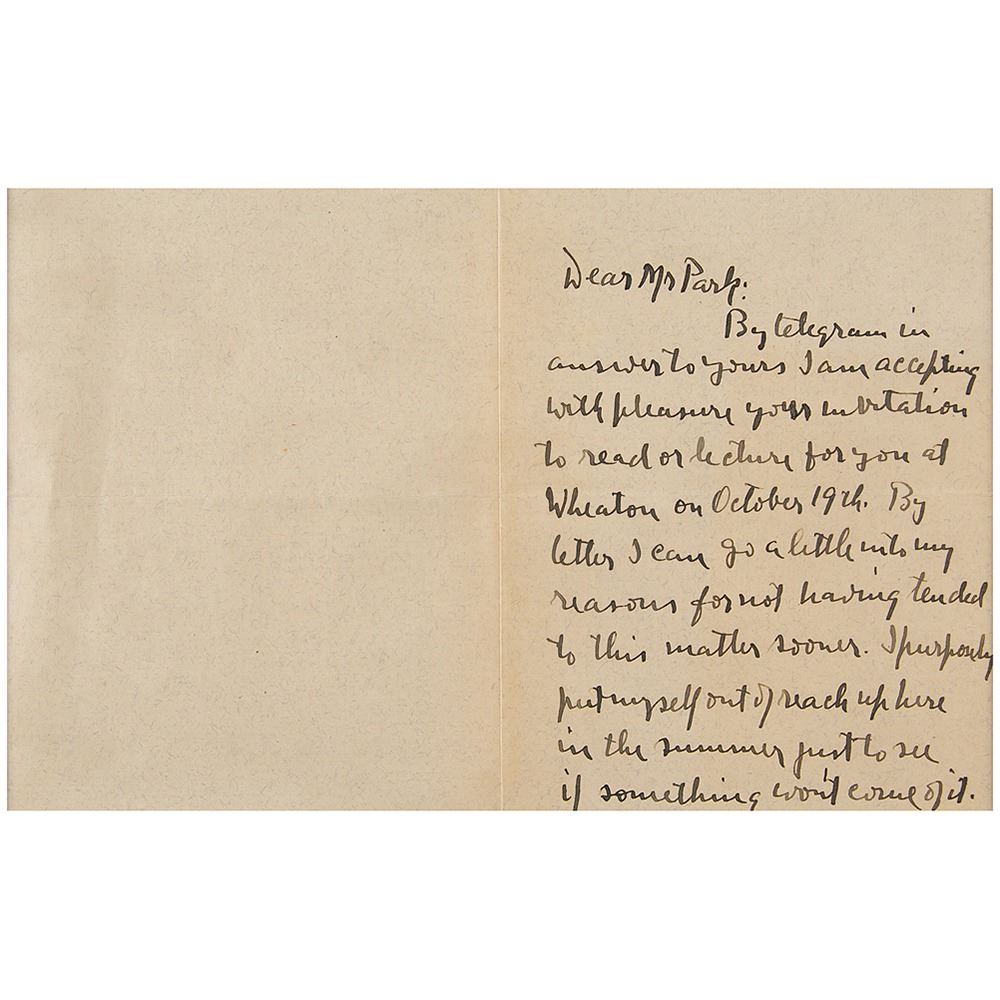 Dear Mr Park:
By telegram in
answer to yours I am accepting
with pleasure your invitation
to read or lecture for you at
Wheaton on October 19th. By
letter I can go a little into my
reasons for not having tended
to this matter sooner. I purposely
put myself out of reach up here
in the summer just to see
if something won't come of it.